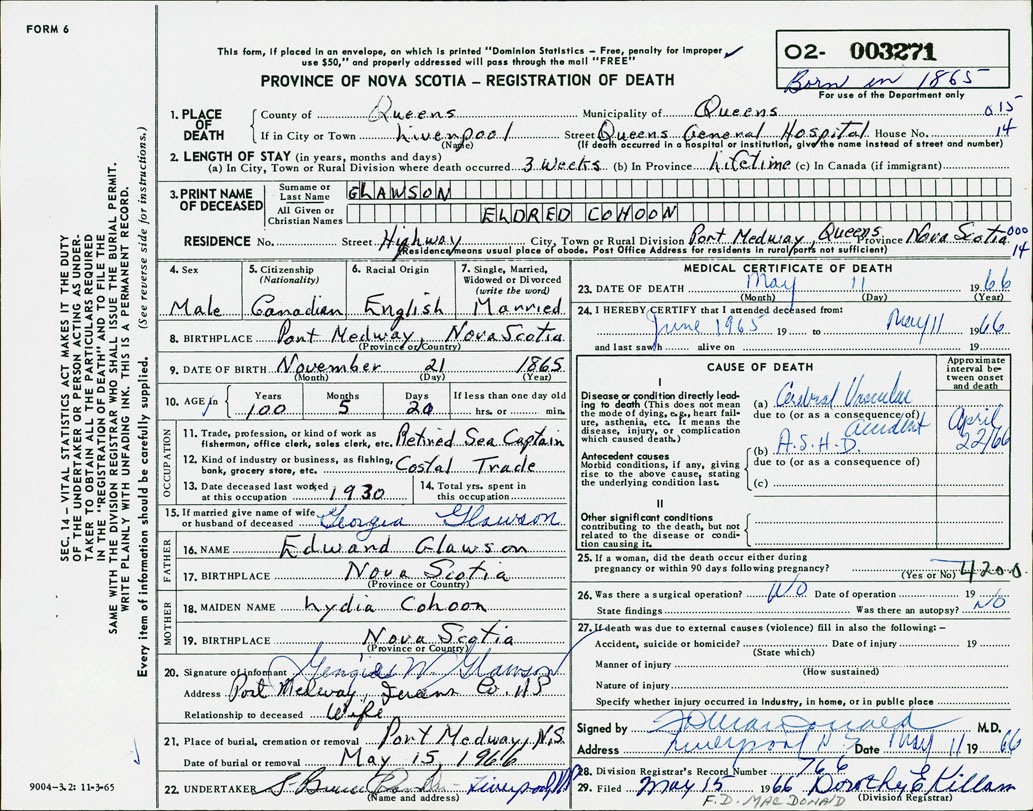 FORM 6
This form, if placed in an envelope, on which is printed "Dominion Statistics – Free, penalty for improper
use $50," and properly addressed will pass through the mail "FREE"
PROVINCE OF NOVA SCOTIA – REGISTRATION OF DEATH
02- 003271
Born in 1865
For use of the Department only
SEC. 14 – VITAL STATISTICS ACT MAKES IT THE DUTY
OF THE UNDERTAKER OR PERSON ACTING AS UNDER-
TAKER TO OBTAIN ALL THE PARTICULARS REQUIRED
IN THE "REGISTRATION OF DEATH" AND TO FILE THE
SAME WITH THE DIVISION REGISTRAR WHO SHALL ISSUE THE BURIAL PERMIT.
WRITE PLAINLY WITH UNFADING INK. THIS IS A PERMANENT RECORD.
Every item of information should be carefully supplied. (See reverse side for instructions.)
1. PLACE OF DEATH
County of Queens Municipality of Queens 015
If in City or Town Liverpool Street Queens General Hospital House No. 14
(Name) (If death occurred in a hospital or institution, give the name instead of street and number)
2. LENGTH OF STAY (in years, months and days)
(a) In City, Town or Rural Division where death occurred 3 Weeks (b) In Province Lifetime (c) In Canada (if immigrant)
3. PRINT NAME OF DECEASED
Surname or Last Name GLAWSON
All Given or Christian Names ELDRED COHOON
RESIDENCE No. Street Highway City, Town or Rural Division Port Medway, Queens Province Nova Scotia 000
(Residence means usual place of abode. Post Office Address for residents in rural parts not sufficient) 14
4. Sex Male
5. Citizenship (Nationality) Canadian
6. Racial Origin English
7. Single, Married, Widowed or Divorced (write the word) Married
8. BIRTHPLACE Port Medway, Nova Scotia
(Province or Country)
9. DATE OF BIRTH November 21 1865
(Month) (Day) (Year)
10. AGE in Years 100 Months 5 Days 20 If less than one day old
hrs. or min.
OCCUPATION
11. Trade, profession, or kind of work as
fisherman, office clerk, sales clerk, etc. Retired Sea Captain
12. Kind of industry or business, as fishing,
bank, grocery store, etc. Costal Trade
13. Date deceased last worked
at this occupation 1930
14. Total yrs. spent in
this occupation
15. If married give name of wife
or husband of deceased Georgia Glawson
FATHER
16. NAME Edward Glawson
17. BIRTHPLACE Nova Scotia
(Province or Country)
MOTHER
18. MAIDEN NAME Lydia Cohoon
19. BIRTHPLACE Nova Scotia
(Province or Country)
20. Signature of informant Georgia W. Glawson
Address Port Medway, Queens Co NS
Relationship to deceased Wife
21. Place of burial, cremation or removal Port Medway, N.S.
Date of burial or removal May 15, 1966
22. UNDERTAKER Liverpool NS
(Name and address)
9004-3.2: 11-3-65
MEDICAL CERTIFICATE OF DEATH
23. DATE OF DEATH May 11 1966
(Month) (Day) (Year)
24. I HEREBY CERTIFY that I attended deceased from:
June 1965 19 to May 11 1966
and last saw h alive on 19
CAUSE OF DEATH
Approximate interval between onset and death
I
Disease or condition directly lead-
ing to death (This does not mean
the mode of dying, e.g., heart fail-
ure, asthenia, etc. It means the
disease, injury, or complication
which caused death.)
(a) Cerebral Vascular
due to (or as a consequence of)
accident
April 22/66
Antecedent causes
Morbid conditions, if any, giving
rise to the above cause, stating
the underlying condition last.
(b) A.S.H.D.
due to (or as a consequence of)
(c)
II
Other significant conditions
contributing to the death, but not
related to the disease or condi-
tion causing it.
25. If a woman, did the death occur either during
pregnancy or within 90 days following pregnancy?
(Yes or No) 4200
26. Was there a surgical operation? NO Date of operation 19
State findings Was there an autopsy? NO
27. If death was due to external causes (violence) fill in also the following: –
Accident, suicide or homicide? Date of injury 19
(State which)
Manner of injury
(How sustained)
Nature of injury
Specify whether injury occurred in industry, in home, or in public place
Signed by F D MacDonald M.D.
Address Liverpool N S Date May 11 1966
28. Division Registrar's Record Number 766
29. Filed May 15 1966 Dorothy E Killam
F.D. MACDONALD (Division Registrar)